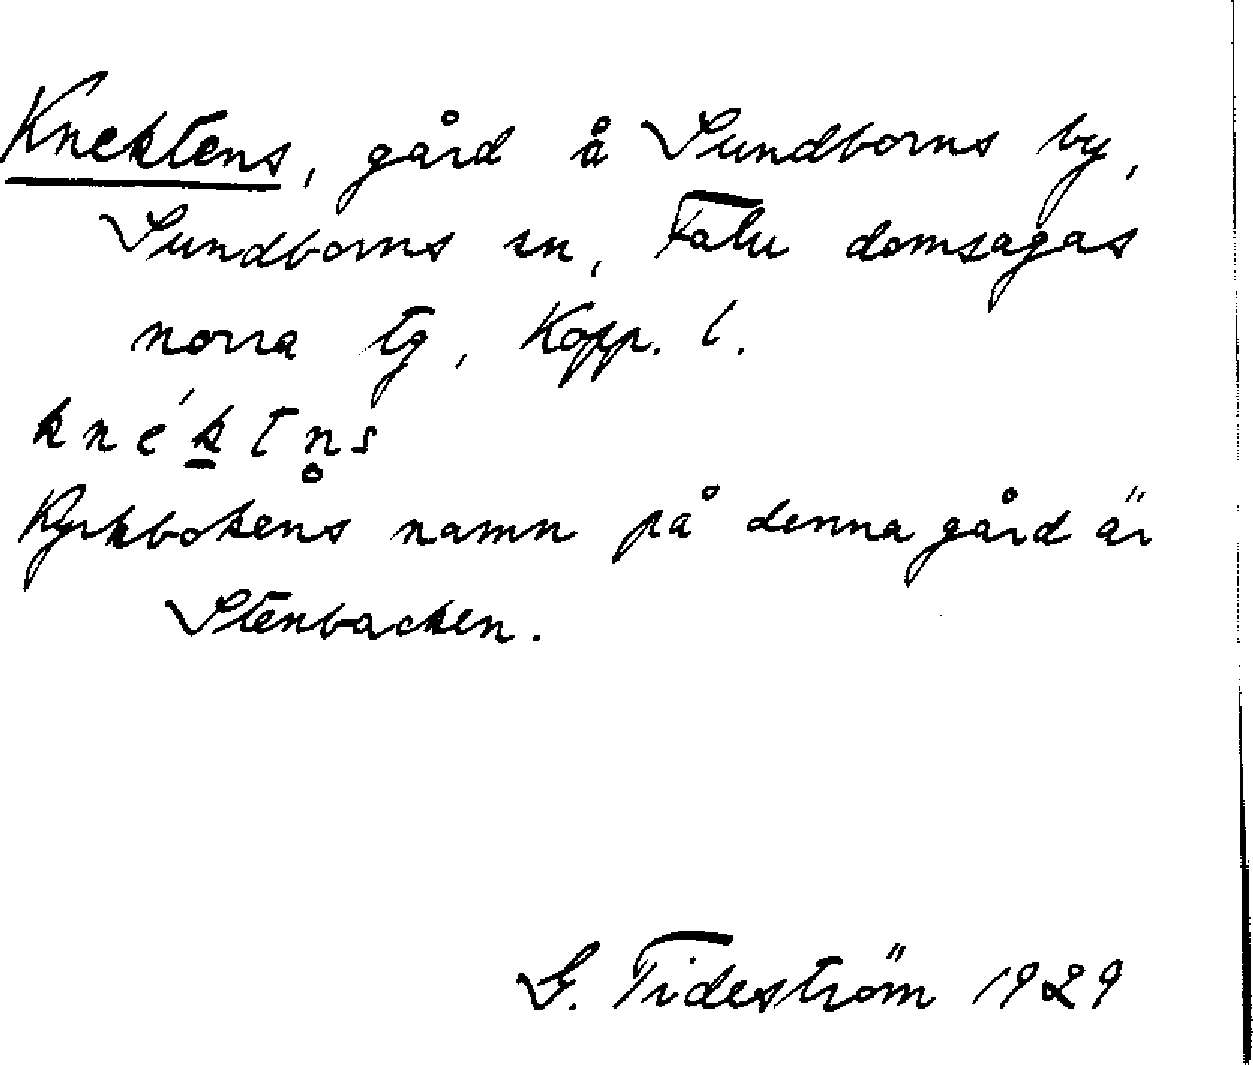 Knektens, gård å Sundborns by,
Sundborns sn, Falu domsagas
norra tg, Kopp. l.
kne´k̲tn̥s
Kyrkbokens namn på denna gård är
Stenbacken.
G. Tideström 1929